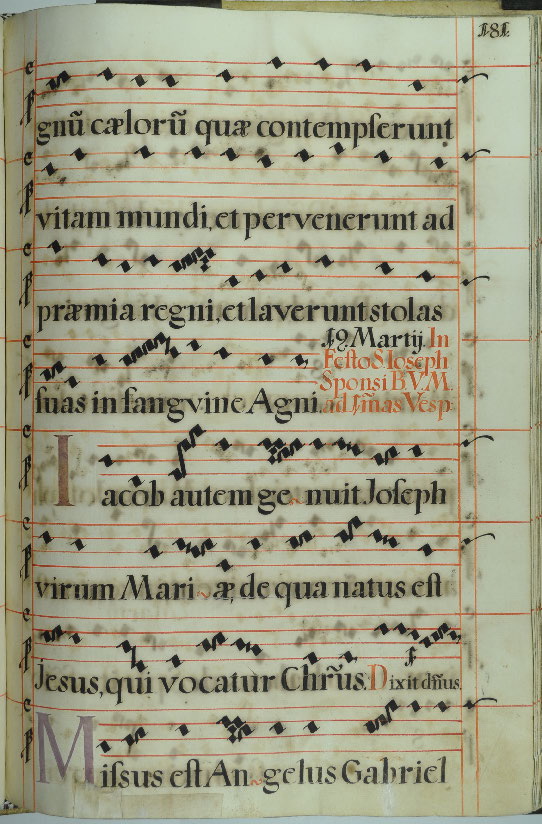 181.
gnũ cælorũ quæ contempserunt
vitam mundi, et pervenerunt ad
præmia regni, et laverunt stolas
suas in sangvine Agni.
19. Martij. In
Festo S. Ioseph
Sponsi B.V.M.
ad Vesp
Iacob autem ge~nuit Joseph
virum Mari~æ, de qua natus est
Jesus, qui vocatur Chrũs. Dixit dñus.
Missus est An~gelus Gabriel